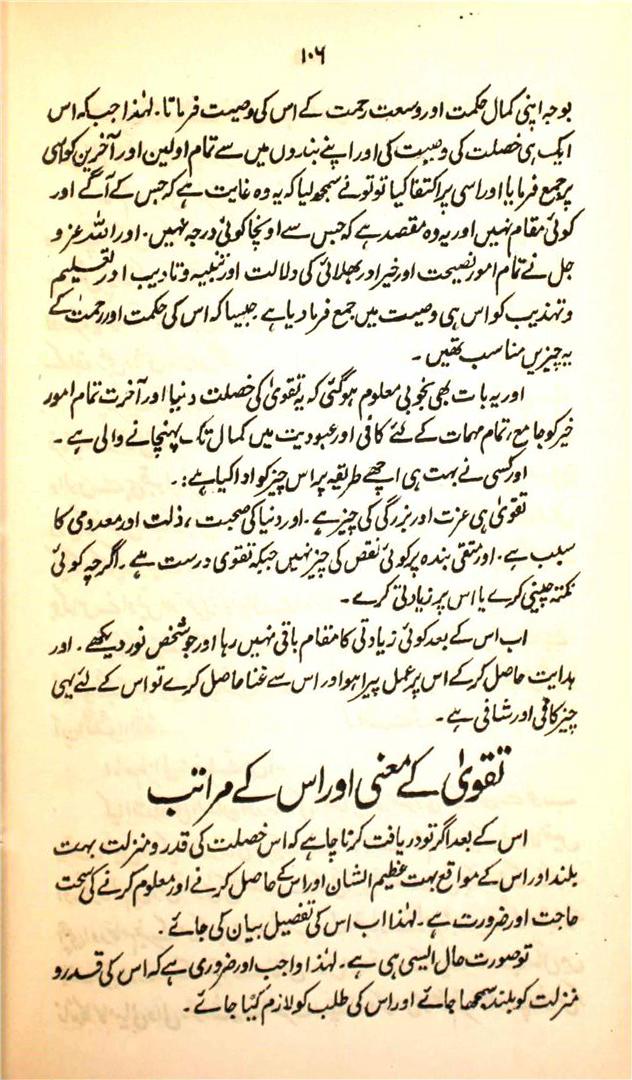 ۱۰۶
بوجہ اپنی کمال حکمت اور وسعت رحمت کے اس کی وصیت فرماتا۔ لہٰذا جب کہ اس
ایک ہی خصلت کی وصیت کی اور اپنے بندوں میں سے تمام اولین اور آخرین کو اسی
پر جمع فرمایا اور اسی پر اکتفا کیا تو تونے سمجھ لیا کہ یہ وہ غایت ہے کہ جس کے آگے اور
کوئی مقام نہیں اور یہ وہ مقصد ہے کہ جس سے اونچا کوئی درجہ نہیں۔ اور اللہ عز و
جل نے تمام امور نصیحت اور خیر اور بھلائی کی دلالت اور تنبیہ و تادیب اور تعلیم
و تہذیب کو اس ہی وصیت میں جمع فرما دیا ہے۔ جیسا کہ اس کی حکمت اور رحمت کے
یہ چیزیں مناسب تھیں۔
اور یہ بات بھی بخوبی معلوم ہو گئی کہ یہ تقویٰ کی خصلت دنیا اور آخرت تمام امور
خیر کو جامع، تمام مہمات کے لئے کافی اور عبودیت میں کمال تک پہنچانے والی ہے۔
اور کسی نے بہت ہی اچھے طریقہ پر اس چیز کو ادا کیا ہے:۔
تقویٰ ہی عزت اور بزرگی کی چیز ہے۔ اور دنیا کی صحبت، ذلت اور معدومی کا
سبب ہے۔ اور متقی بندہ پر کوئی نقص کی چیز نہیں جبکہ تقویٰ درست ہے۔ اگرچہ کوئی
نکتہ چینی کرے یا اس پر زیادتی کرے۔
اب اس کے بعد کوئی زیادتی کا مقام باقی نہیں رہا اور جو شخص نور دیکھے۔ اور
ہدایت حاصل کر کے اس پر عمل پیرا ہو اور اس سے غنا حاصل کرے تو اس کے لئے یہی
چیز کافی اور شافی ہے۔
تقویٰ کے معنی اور اس کے مراتب
اس کے بعد اگر تو دریافت کرنا چاہے کہ اس خصلت کی قدر و منزلت بہت
بلند اور اس کے مواقع بہت عظیم الشان اور اس کے حاصل کرنے اور معلوم کرنے کی سخت
حاجت اور ضرورت ہے۔ لہٰذا اب اس کی تفصیل بیان کی جائے۔
تو صورت حال ایسی ہی ہے۔ لہٰذا واجب اور ضروری ہے کہ اس کی قدر و
منزلت کو بلند سمجھا جائے اور اس کی طلب کو لازم کیا جائے۔